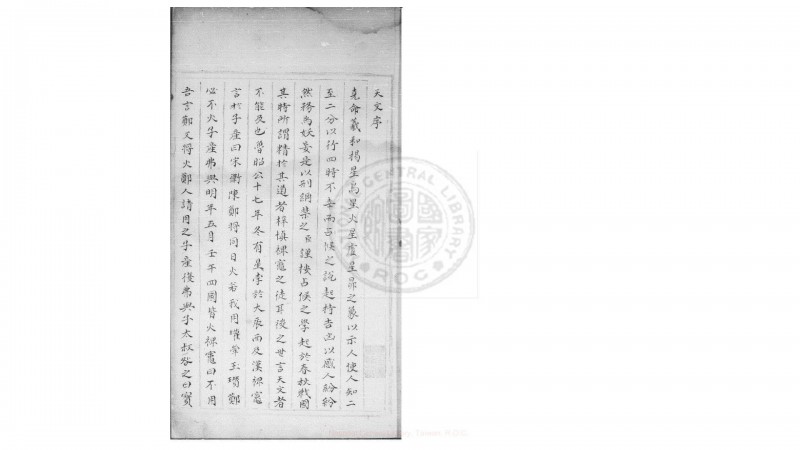 天文序
堯命羲和揭星鳥星火星虛星昴之象以示人使人知二
至二分以行四時不幸而占候之說起持吉凶以惑人紛紛
然務為妖妄是以刑網禁之臣謹按占候之學起於春秋戰國
其時所謂精於其道者梓慎裨竈之徒耳後之世言天文者
不能及也魯昭公十七年冬有星孛於大辰西及漢裨竈
言於子產曰宋衛陳鄭將同日火若我用瓘斝玉瓚鄭
必不火子產弗與明年五月壬午四國皆火裨竈曰不用
吾言鄭又將火鄭人請用之子產復弗與子太叔咎之曰寶
NATIONAL CENTRAL LIBRARY
R.O.C.
國家圖書館